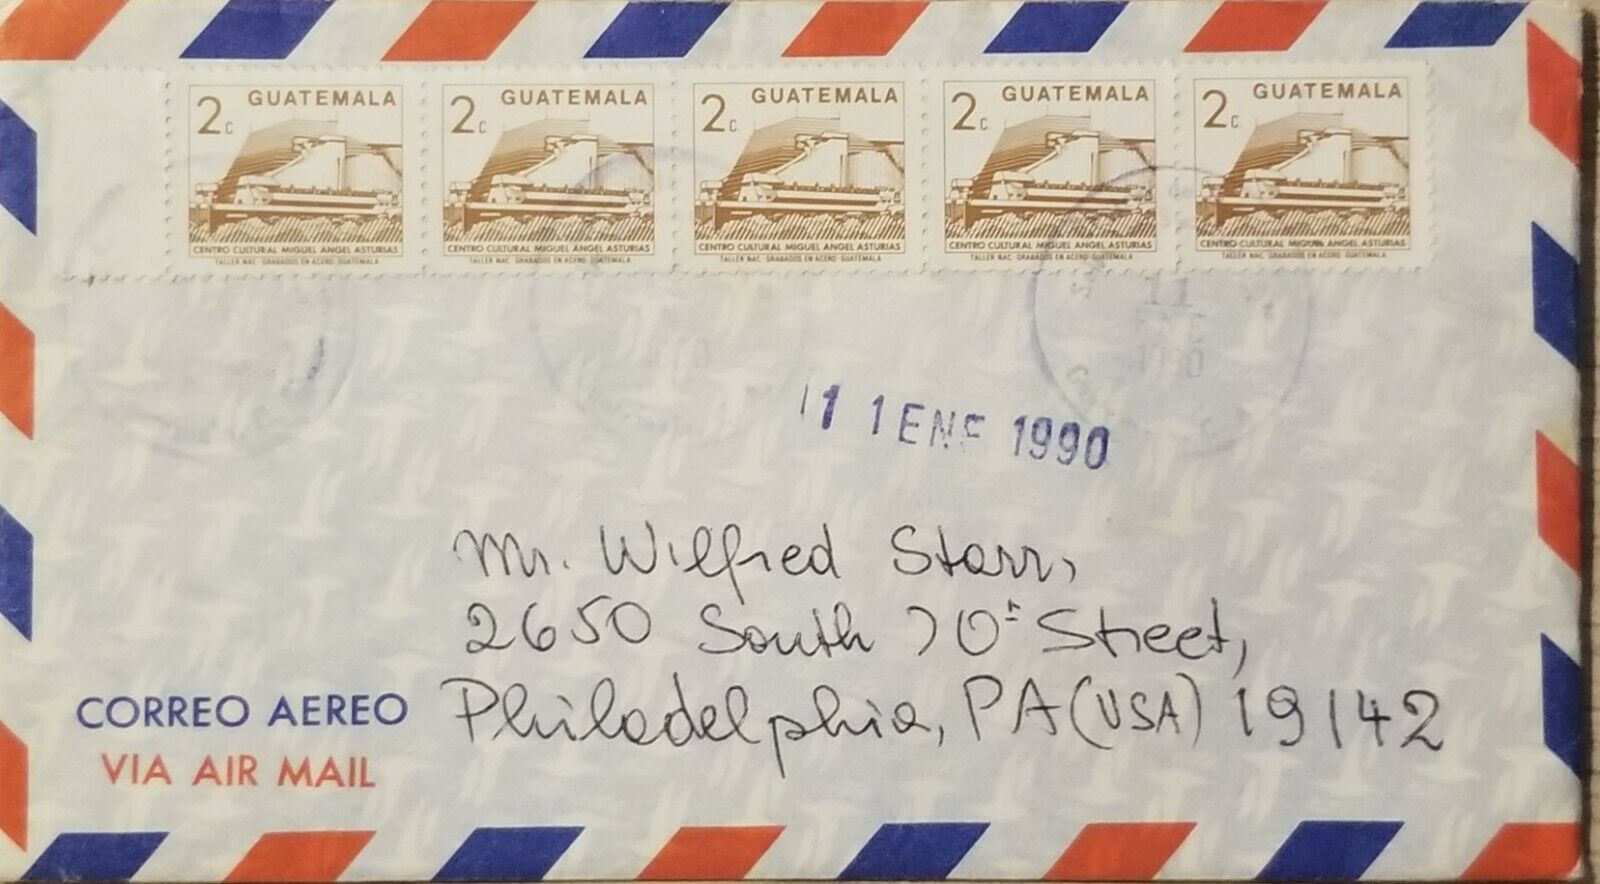 2c GUATEMALA
CENTRO CULTURAL MIGUEL ANGEL ASTURIAS
TALLER NAC. GRABADOS EN ACERO GUATEMALA
2c GUATEMALA
CENTRO CULTURAL MIGUEL ANGEL ASTURIAS
TALLER NAC. GRABADOS EN ACERO GUATEMALA
2c GUATEMALA
CENTRO CULTURAL MIGUEL ANGEL ASTURIAS
TALLER NAC. GRABADOS EN ACERO GUATEMALA
2c. GUATEMALA
CENTRO CULTURAL MIGUEL ANGEL ASTURIAS
TALLER NAC. GRABADOS EN ACERO GUATEMALA
2c. GUATEMALA
CENTRO CULTURAL MIGUEL ANGEL ASTURIAS
TALLER NAC. GRABADOS EN ACERO GUATEMALA
11
1990
11 ENE 1990
Mr. Wilfred Starr,
2650 South 70th Street,
Philadelphia, PA (USA) 19142
CORREO AEREO
VIA AIR MAIL